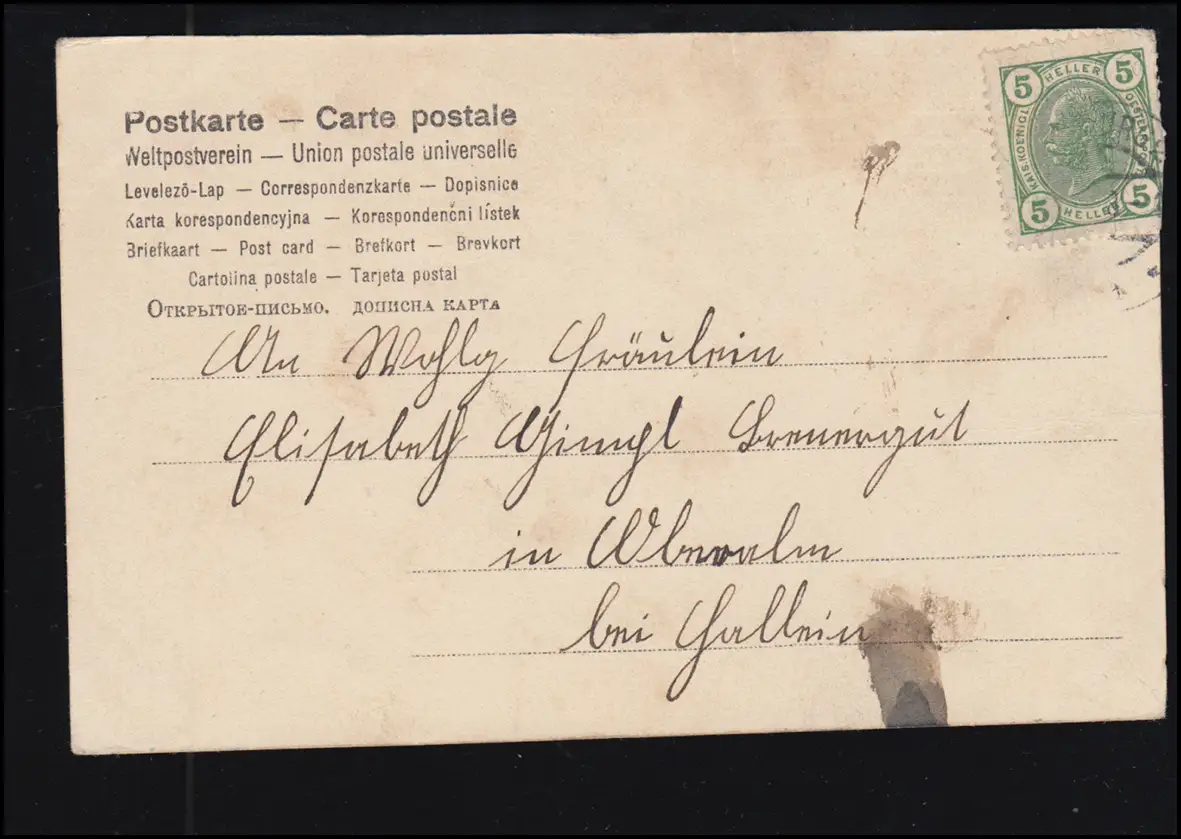 Postkarte — Carte postale
Weltpostverein — Union postale universelle
Levelező-Lap — Correspondenzkarte — Dopisnice
Karta korespondencyjna — Korespondenčni listek
Briefkaart — Post card — Brefkort — Brevkort
Cartolina postale — Tarjeta postal
Открытое-письмо. дописна карта
5 HELLER 5
KAIS. KOENIGL.
5 HELLER 5
An Wohlg Fräulein
Elisabeth Gimpl Brenergut
in Oberalm
bei Hallein